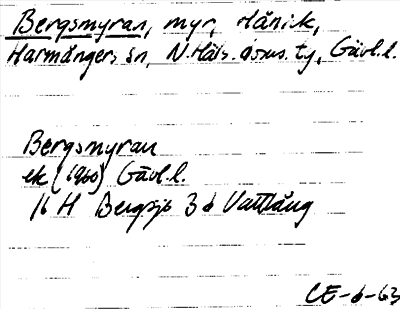 Bergsmyran, myr, Hånick,
Harmångers sn, N. Häls. doms. ty, Gävl. l.
Bergsmyran
ek (1960) Gävl. l.
16 H Bergsjö 3 d Vattlång
CE-6-63